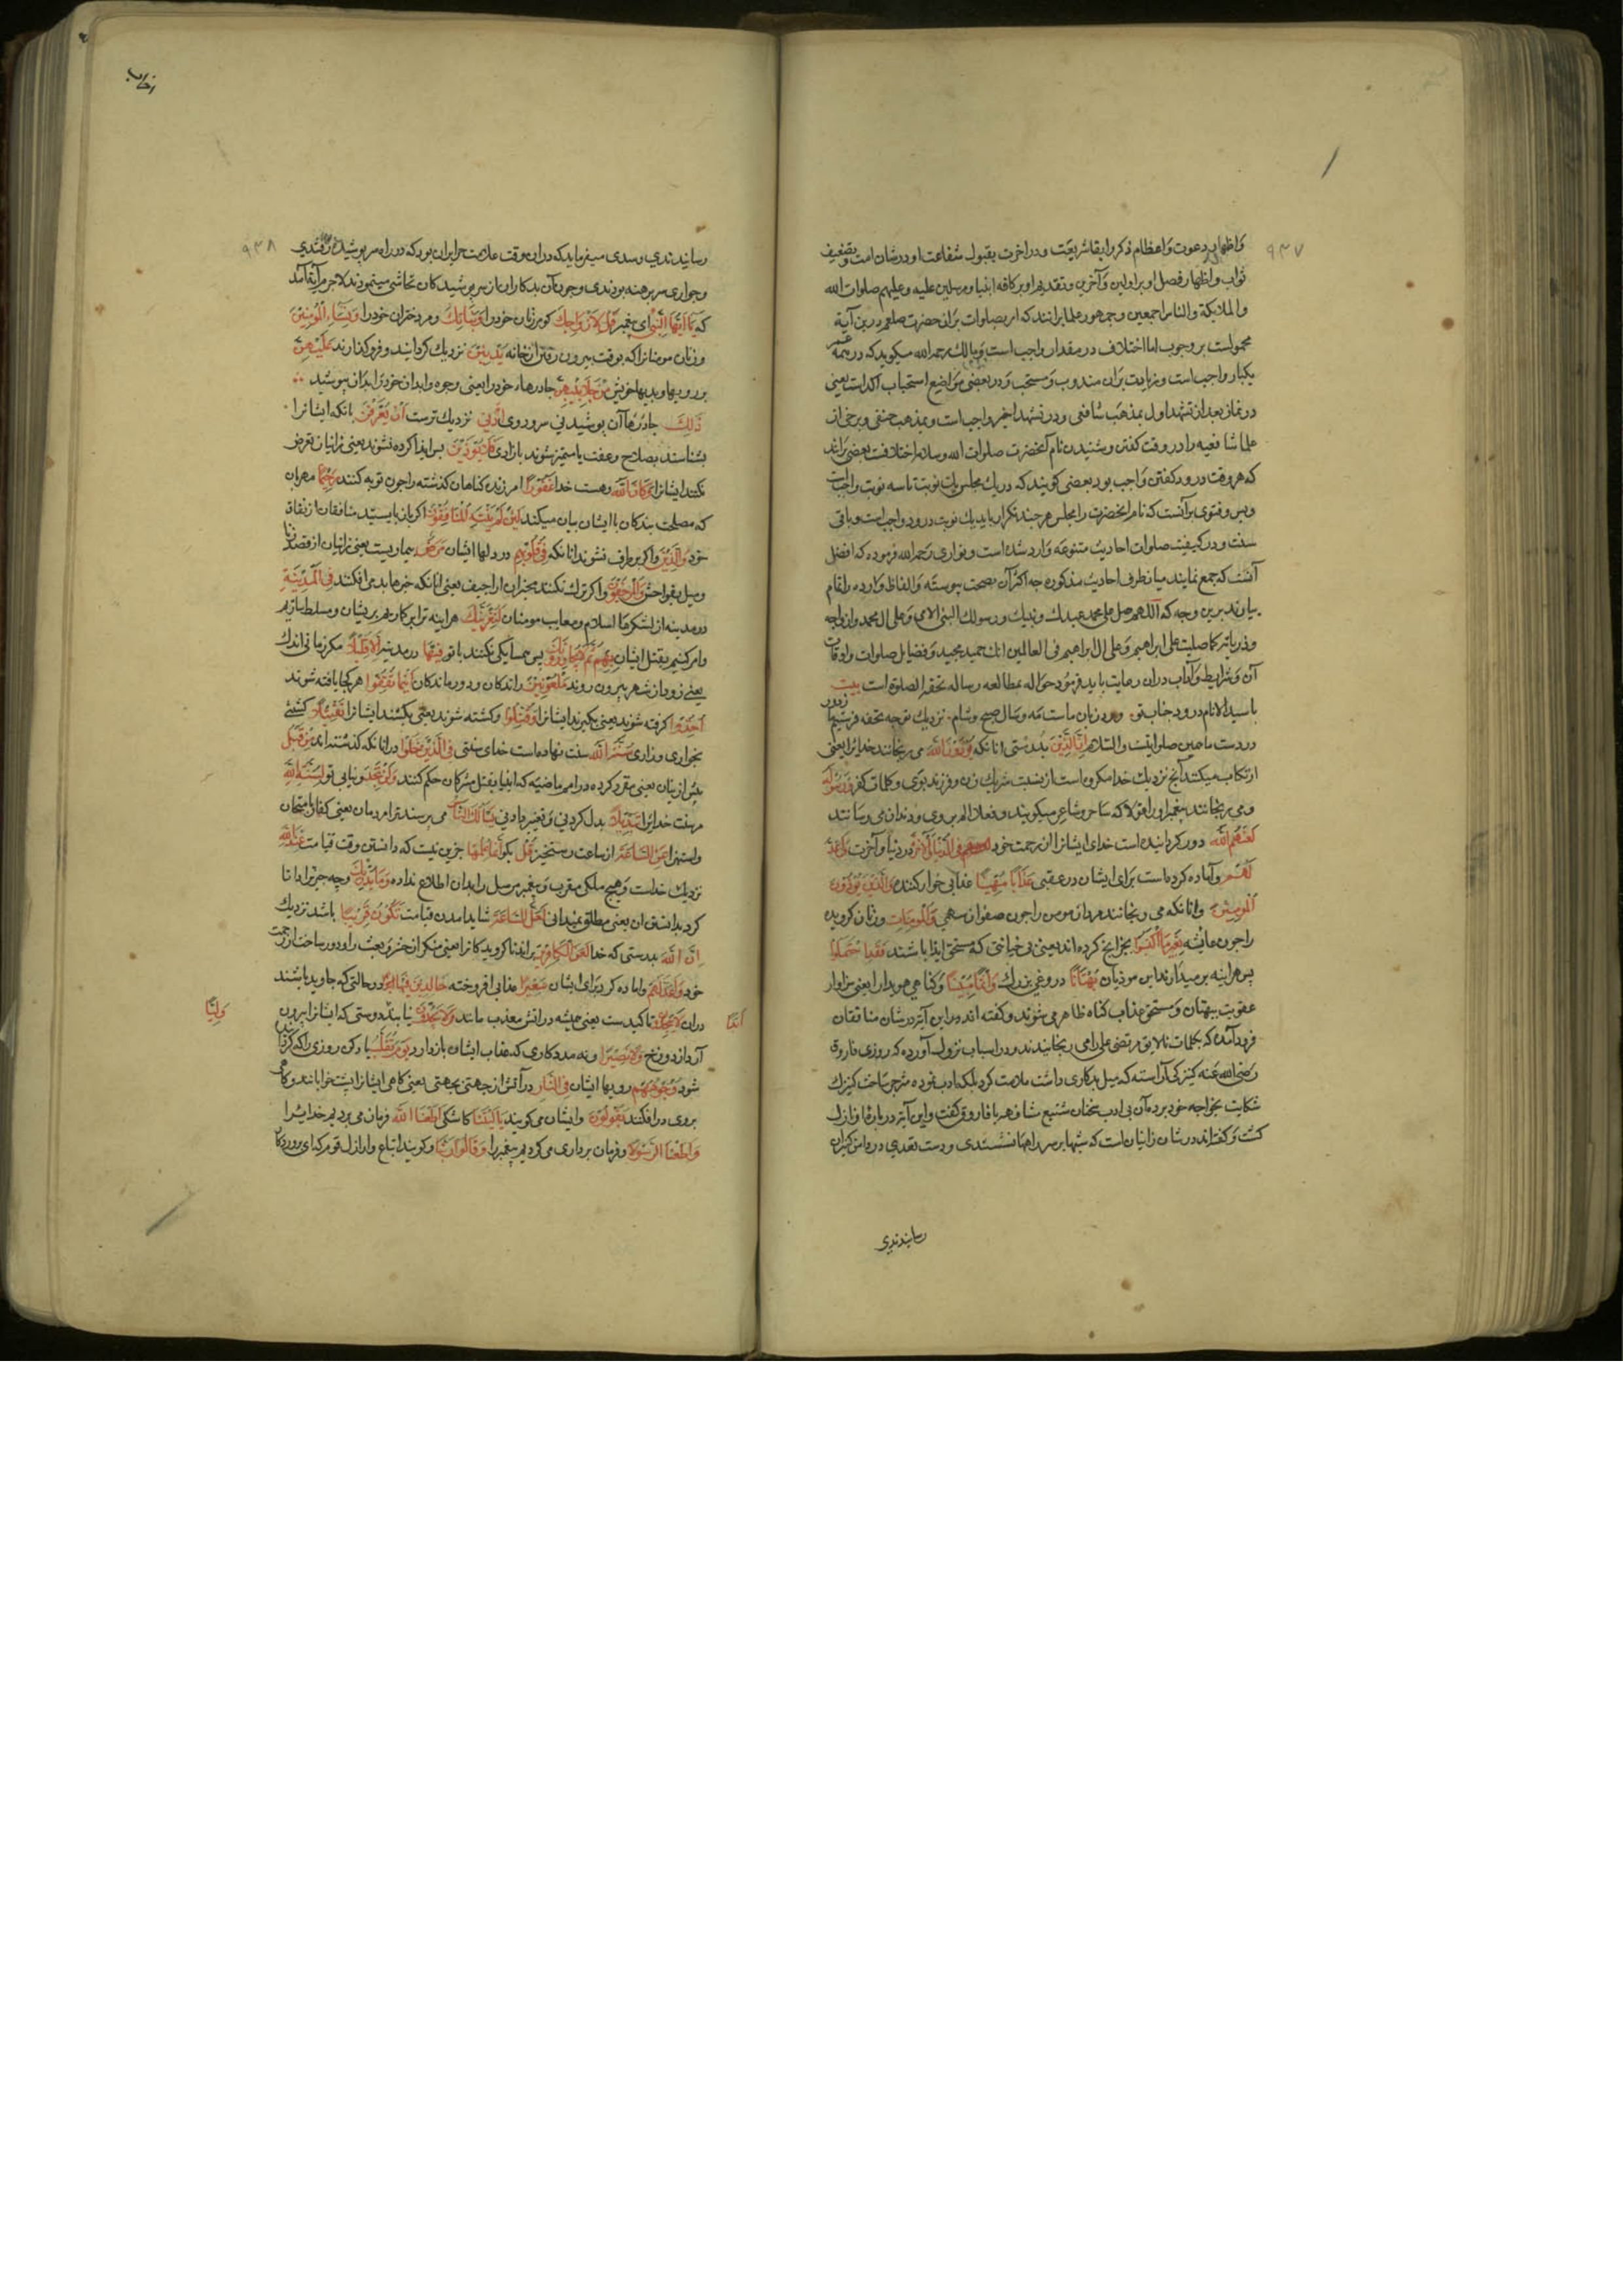 ۹۳۷
واظهار دعوت واعظام ذکر وابقا شریعت ودر اخرت بقبول شفاعت او در شان امت وتضعیف
ثواب واظهار فضل او بر اولین وآخرین وتقدیم او بر کافه انبیا ومرسلین علیه وعلیهم صلوات الله
والملایکة والناس اجمعین وجمهور علما برانند که امر بصلوات بران حضرت صلعم درین آیة
محمولست بر وجوب اما اختلاف در مقدار واجب است ومالک رحمه الله میکوید که در همه عمر
یکبار واجب است وزیادت بران مندوب ومستحب ودر بعضی مواضع استحباب آکد است یعنی
در نماز بعد از تشهد اول بمذهب شافعی ودر تشهد اخیر واجب است وبمذهب حنفی وبرخی از
علما شافعیه را در وقت کفتن وشنیدن نام آنحضرت صلوات الله وسلامه اختلافست بعضی برانند
که هر وقت درود کفتن واجب بود بعضی کویند که در یک مجلس یک نوبت تا سه نوبت واجبست
وبس وفتوی برآنست که نام انحضرت را بمجلس هر چند تکرار یابد یک نوبت درود واجب است وباقی
سنت ودر کیفیت صلوات احادیث متنوعه وارد شده است ونواوی رحمه الله فرموده که افضل
آنست که جمع نمایند میان طرق احادیث مذکوره چه اکثر آن بصحت پیوسته والفاظ وارده را تمام
بیاوند برین وجه که اللهم صل علی محمد عبدک ونبیک ورسولک النبی الامی وعلی ال محمد وازواجه
وذریاته کما صلیت علی ابراهیم وعلی ال ابراهیم فی العالمین انک حمید مجید وفضایل صلوات واوقات
آن وشرایط وآداب دران رعایت باید فرمود حواله بمطالعه رساله تحفه الصلوة است بیت
یا سید الانام درود جناب تو ورد زبان ماست مه وسال صبح وشام نزدیک تو چه تحفه فرستیم ما ز دور
در دست ما همین صلواتست والسلام ان الذین بدرستی انانکه یوذون الله می رنجانند خدایرا یعنی
ارتکاب میکنند آنچ نزدیک خدا مکروه است از نسبت شریک وزن وفرزند بوی وکلمات کفر ورسوله
ومی رنجانند پیغمبر او را قولا که ساحر وشاعر میکویند وفعلا الم بروی ودندان می رسانند
لعنهم الله دور کردانیده است خدای ایشانرا از رحمت خود فی الدنیا والاخرة در دنیا وآخرت واعد
لهم وآماده کرده است برای ایشان در عقبی عذابا مهینا عذابی خوار کننده والذین یوذون
المومنین وانانکه می رنجانند مردان مومن را چون صفوان سهمی والمومنات وزنان کرویده
را چون عایشه بغیر ما اکتسبوا بجز انچ کرده اند یعنی بی خیانتی که مستحق ایذا باشند فقد احتملوا
پس هر اینه بر میدارند این موذیان بهتانا دروغی بزرک واثما مبینا وکناهی هویدا را یعنی سزاوار
عقوبت بهتان ومستحق عذاب کناه ظاهر می شوند وکفته اند مراین آیة در شان منافقان
فرود آمده که بکلمات نالایق مرتضی علی را می رنجانیدند ودر اسباب نزول آورده که روزی فاروق
رضی الله عنه کنیزکی آراسته که میل بدکاری داشت ملامت کرد بلکه ادب فرموده مترجم ساخت کنیزک
شکایت بخواجه خود برده آن بی ادب سخنان شنیع شافهه با فاروق کفت واین آیة درباره او نازل
کشت وکفته اند در شان زانیان است که شبها بر سر راهها نشستندی ودست تعدی در دامن کنیزان
رسانیدندی
۹۳۸
رسانیدندی وسدی میفرماید که دران وقت علامت حرایر ان بود که در راه سر پوشیده رفتندی
وجواری سر برهنه بودندی وچون آن بدکاران از سر پوشیدکان تحاشی مینمودند لاجرم آیة آمد
که یا ایها النبی ای پیغمبر قل لازواجک کو مر زنان خود را وبناتک ومر دختران خود را ونساء المومنین
وزنان مومنانرا که بوقت بیرون رفتن از خانه یدنین نزدیک کردانند وفرو کذارند علیهن
بر رویها وبدنها خویش من جلابیبهن چادرهاء خود را یعنی وجوه وابدان خود را بدان بپوشید
ذلک آن پوشیدنی سر وروی ادنی نزدیک ترست ان یعرفن بانکه ایشانرا
بشناسند بصلاح وعفت یا متمیز شوند بازادی فلا یوذین پس ایذا کرده نشوند یعنی زانیان تعرض
نکنند ایشانرا وکان الله وهست خدا غفورا امرزنده کناهان کذشته را چون توبه کنند رحیما مهربان
که مصلحت بندکان با ایشان بیان میکند لئن لم ینته المنافقون اکر باز نایستند منافقان از نفاق
خود والذین واکر بر طرف نشوند انانکه فی قلوبهم در دلها ایشان مرض بیماریست یعنی زانیان از قصد زنا
ومیل بفواحش والمرجفون واکر ترک نکنند مخبران اراجیف یعنی انانکه خبرها بد می افکنند فی المدینة
در مدینه از لشکرها اسلام ومعایب مومنان لنغرینک هراینه ترا برکاریم بریشان ومسلط سازیم
وامر کنیم بقتل ایشان بهم ثم لا یجاورونک پس همسایکی نکنند با تو فیها در مدینه الا قلیلا مکر زمانی اندک
یعنی زود از شهر بیرون روند ملعونین راندکان ودور ماندکان اینما ثقفوا هر کجا یافته شوند
اخذوا کرفته شوند یعنی بکیرند ایشانرا وقتلوا وکشته شوند یعنی بکشند ایشانرا تقتیلا کشتنی
بخواری وزاری سنة الله سنت نهاده است خدای سنتی فی الذین خلوا در انانکه کذشته اند من قبل
پیش ازینان یعنی مقرر کرده در امم ماضیه که انبیا بقتل مشرکان حکم کنند ولن تجد ونیابی تو لسنة الله
مر سنت خدایرا تبدیلا بدل کردنی وتغییر دادنی یسئلک الناس می پرسند ترا مردمان یعنی کفار بامتحان
واستهزا عن الساعة از ساعت رستخیز قل بکو انما علمها جزین نیست که دانستن وقت قیامت عند الله
نزدیک خداست وهیچ ملکی مقرب وپیغمبر مرسل را بدان اطلاع نداده وما یدریک وچه چیز ترا دانا
کرد بدانستن ان یعنی مطلق نمیدانی لعل الساعة شاید امدن قیامت تکون قریبا باشد نزدیک
ان الله بدرستی که خدا لعن الکافرین براند ناکرویدکانرا یعنی منکران حشر وبعث را ودور ساخت از رحمت
خود واعد لهم واماده کرد برای ایشان سعیرا عذابی افروخته خالدین فیها در حالتی که جاوید باشند
دران ابدا تاکیدست یعنی همیشه در اتش معذب مانند لا یجدون نیابند ولیا دوستی که ایشانرا بیرون
آرد از دوزخ ولا نصیرا ونه مددکاری که عذاب ایشان باز دارد یوم تقلب یاد کن روزی را که کردانیده
شود وجوههم رویها ایشان فی النار در آتش از جهتی بجهتی یعنی کاهی ایشانرا بپشت خوابانند وکاه
بروی در افکنند یقولون وایشان می کویند یا لیتنا کاشکی اطعنا الله فرمان می بردیم خدایرا
واطعنا الرسولا وفرمان برداری می کردیم پیغمبر را وقالوا ربنا وکویند اتباع واراذل قوم که ای پروردکار